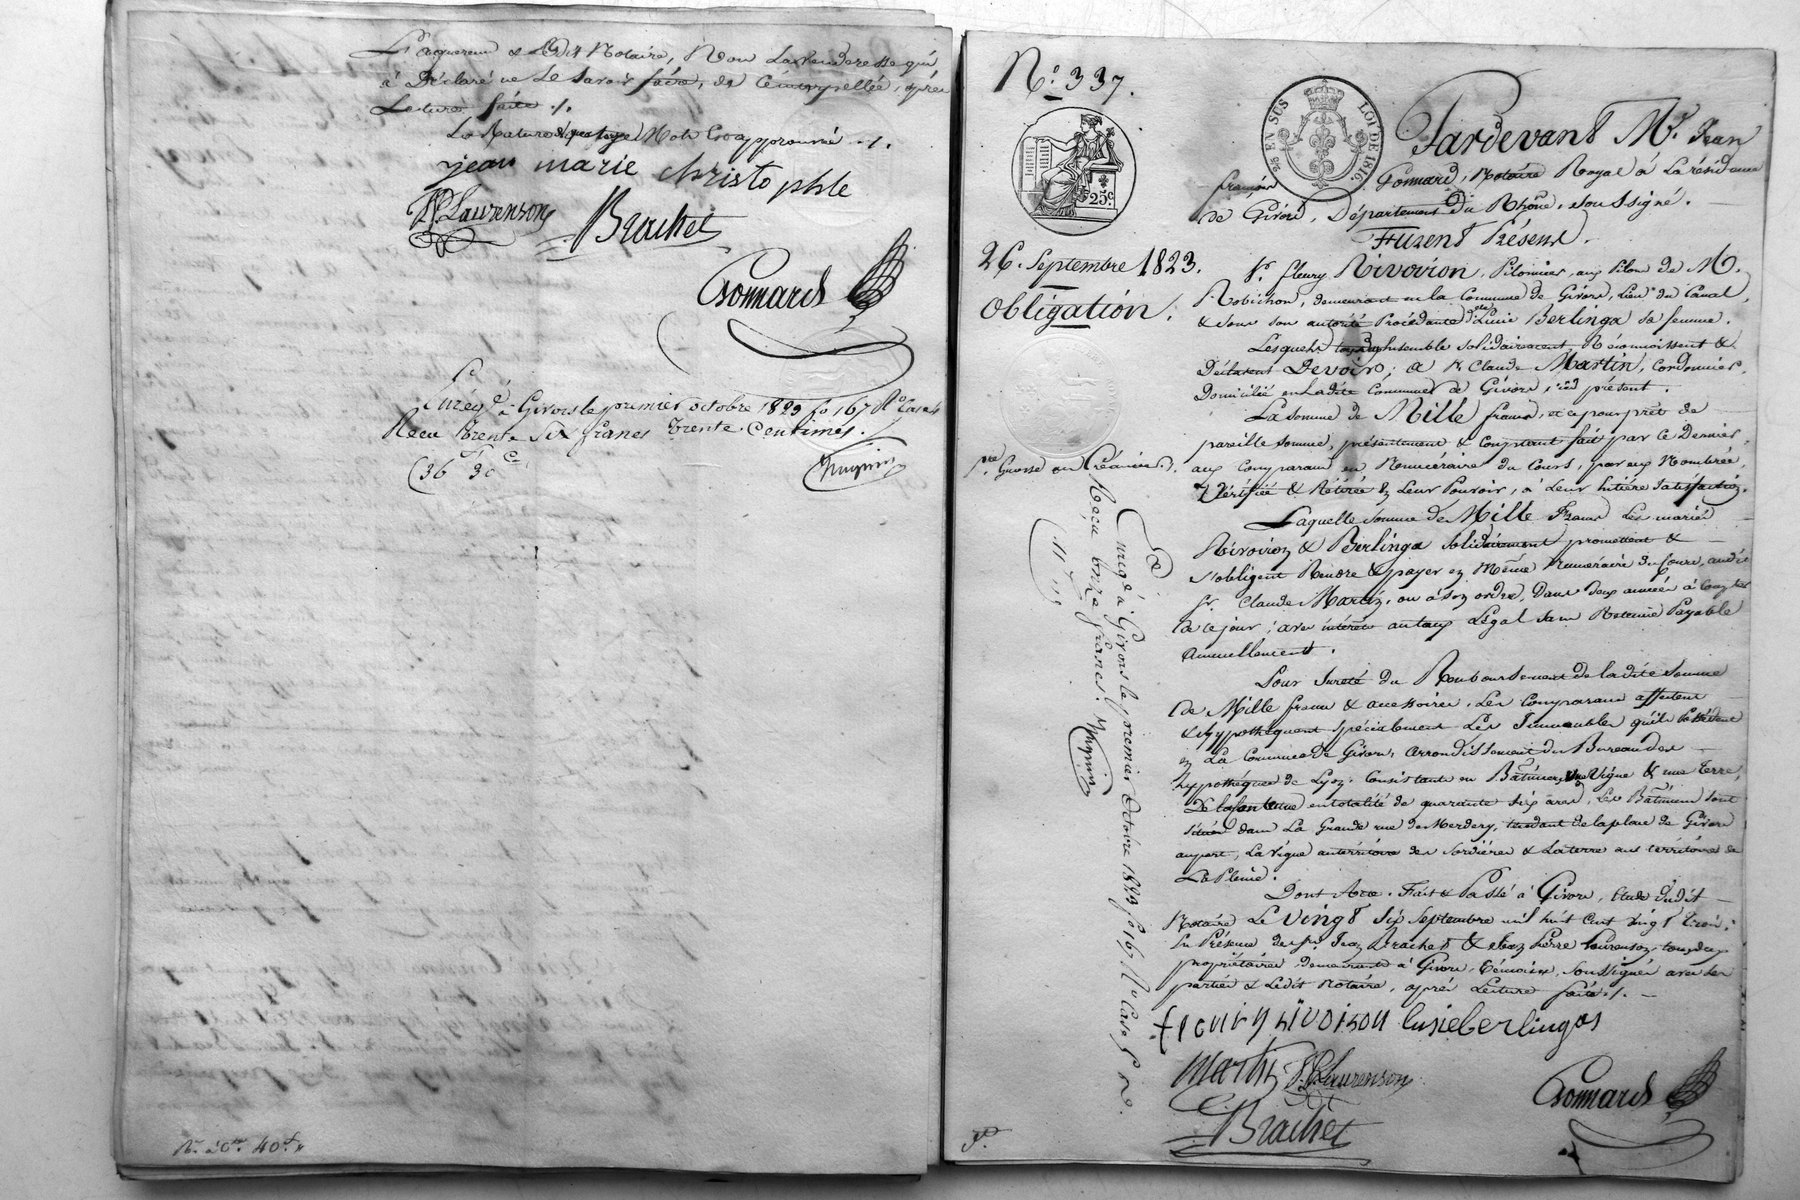 L'aquereur & Ledit Notaire, Non La venderesse qui
à Déclaré ne Le savoir faire, de ce interpellée, après
Lecture faite ./.
La Rature de quatorze Mots Est approuvée ./.
jean marie christophle
JP Laurenson
Brachet
Gonnard
Enregé à Givors le premier octobre 1823 fo 167 Ro Case 4
Recu Trente Six francs Trente Centimes.
(36f 30c
No. 337.
25c EN SUS
LOI DE 1816.
25c
26. Septembre 1823.
Obligation.
pre Grosse au Créancier.
Enregé à Givors le premier Octobre 1823 fo 167 Ro Case
Recu onze francs.
Pardevant Me. Jean
françois Gonnard, Notaire Royal à La résidence
de Givors, Département du Rhône, soussigné.
Furent Présens.
Sr. fleury Rivoiron, Pilonnier, aux Pilons de M.
Robichon, demeurant en la Commune de Givors, Lieu du Canal,
& sous son autorité Procédante Lucie Berlinga sa femme.
Lesquels Ensemble solidairement Réconnoissent &
Déclarent Devoir; à Sr. Claude Martin, Cordonnier,
Domicilié en Ladite Commune de Givors, ici présent.
La somme de Mille francs, et ce pour prêt de
pareille somme, présentement & comptant fait par ce Dernier,
aux Comparans en Numéraire du Cours, par eux Nombrée,
Vérifiée & Rétirée en Leur Pouvoir, à Leur Entière Satisfaction.
Laquelle somme de Mille Francs Les mariés
Rivoiron & Berlinga solidairement promettent &
s'obligent Rendre & payer en Même Numéraire du Cours, audit
Sr. Claude Martin, ou à son ordre, Dans deux années à Compter
de ce jour; avec intérêts au taux Légal sans Retenue Payable
annuellement.
Pour Sureté du Remboursement de ladite somme
de Mille francs & accessoires, Les Comparans affectent
& hypothéquent spécialement Les Immeubles qu'ils Possèdent
en La Commune de Givors, Arrondissement du Bureau des
hypothéques de Lyon. Consistants en Bâtimens, une Vigne & une Terre,
De la Contenue en totalité de quarante six ares, Les Bâtimens sont
situés dans La Grande rue du Merdery, tendant de la place de Givors
au port, La Vigne au territoire des Sordières & La terre au territoire de
La Pleine.
Dont Acte. Fait & Passé à Givors, Etude dudit
Notaire Le Vingt Six Septembre mil huit cent Vingt Trois;
En Présence des Srs. Jean Brachet & Jean Pierre Laurenson, tous deux
propriétaires demeurants à Givors, Témoins, soussignés avec Les
parties & Ledit Notaire, après Lecture faite ./.
fleury rivoiron lusieberlingas
Martin JP Laurenson
Brachet
Gonnard